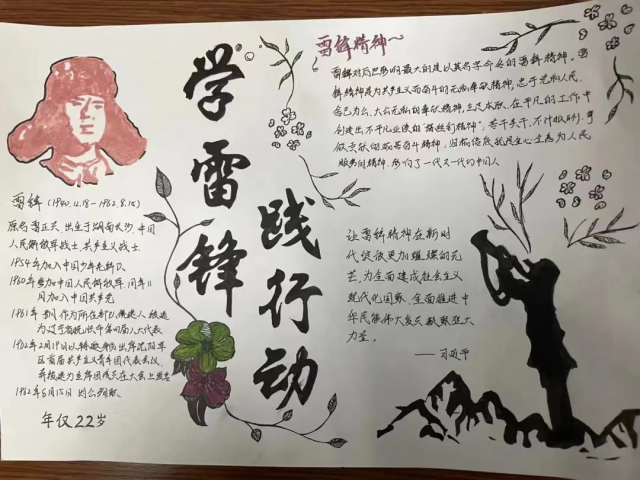 学雷锋
践行动
雷锋精神~
雷锋对后世影响最大的是以其名字命名的雷锋精神。雷
锋精神是为共产主义而奋斗的无私奉献精神，忠于党和人民、
舍己为公、大公无私的奉献精神，立足本职、在平凡的工作中
创造出不平凡业绩的"螺丝钉精神"，苦干实干、不计报酬、争
做贡献的艰苦奋斗精神，归根结底就是全心全意为人民
服务的精神，影响了一代又一代的中国人
雷锋（1940.12.18-1962.8.15）
原名雷正兴，出生于湖南长沙，中国
人民解放军战士，共产主义战士
1954年加入中国少年先锋队
1960年参加中国人民解放军，同年11
月加入中国共产党
1961年
为辽宁省抚顺市第四届人大代表
1962年2月19日以特邀
区首届共产主义青年团代表会议
并被选为主席团成员在大会上发言
1962年8月15日 因公殉职
年仅22岁
让雷锋精神在新时
代绽放更加璀璨的光
芒，为全面建成社会主义
现代化国家、全面推进中
华民族伟大复兴凝聚强大
力量。
——习近平